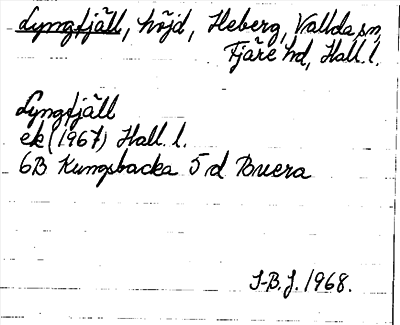 Lyngfjäll, höjd, Heberg, Vallda sn,
Fjäre hd, Hall. l.
Lyngfjäll
ek (1967) Hall. l.
6B Kungsbacka 5 d Buera
I-B. J. 1968.